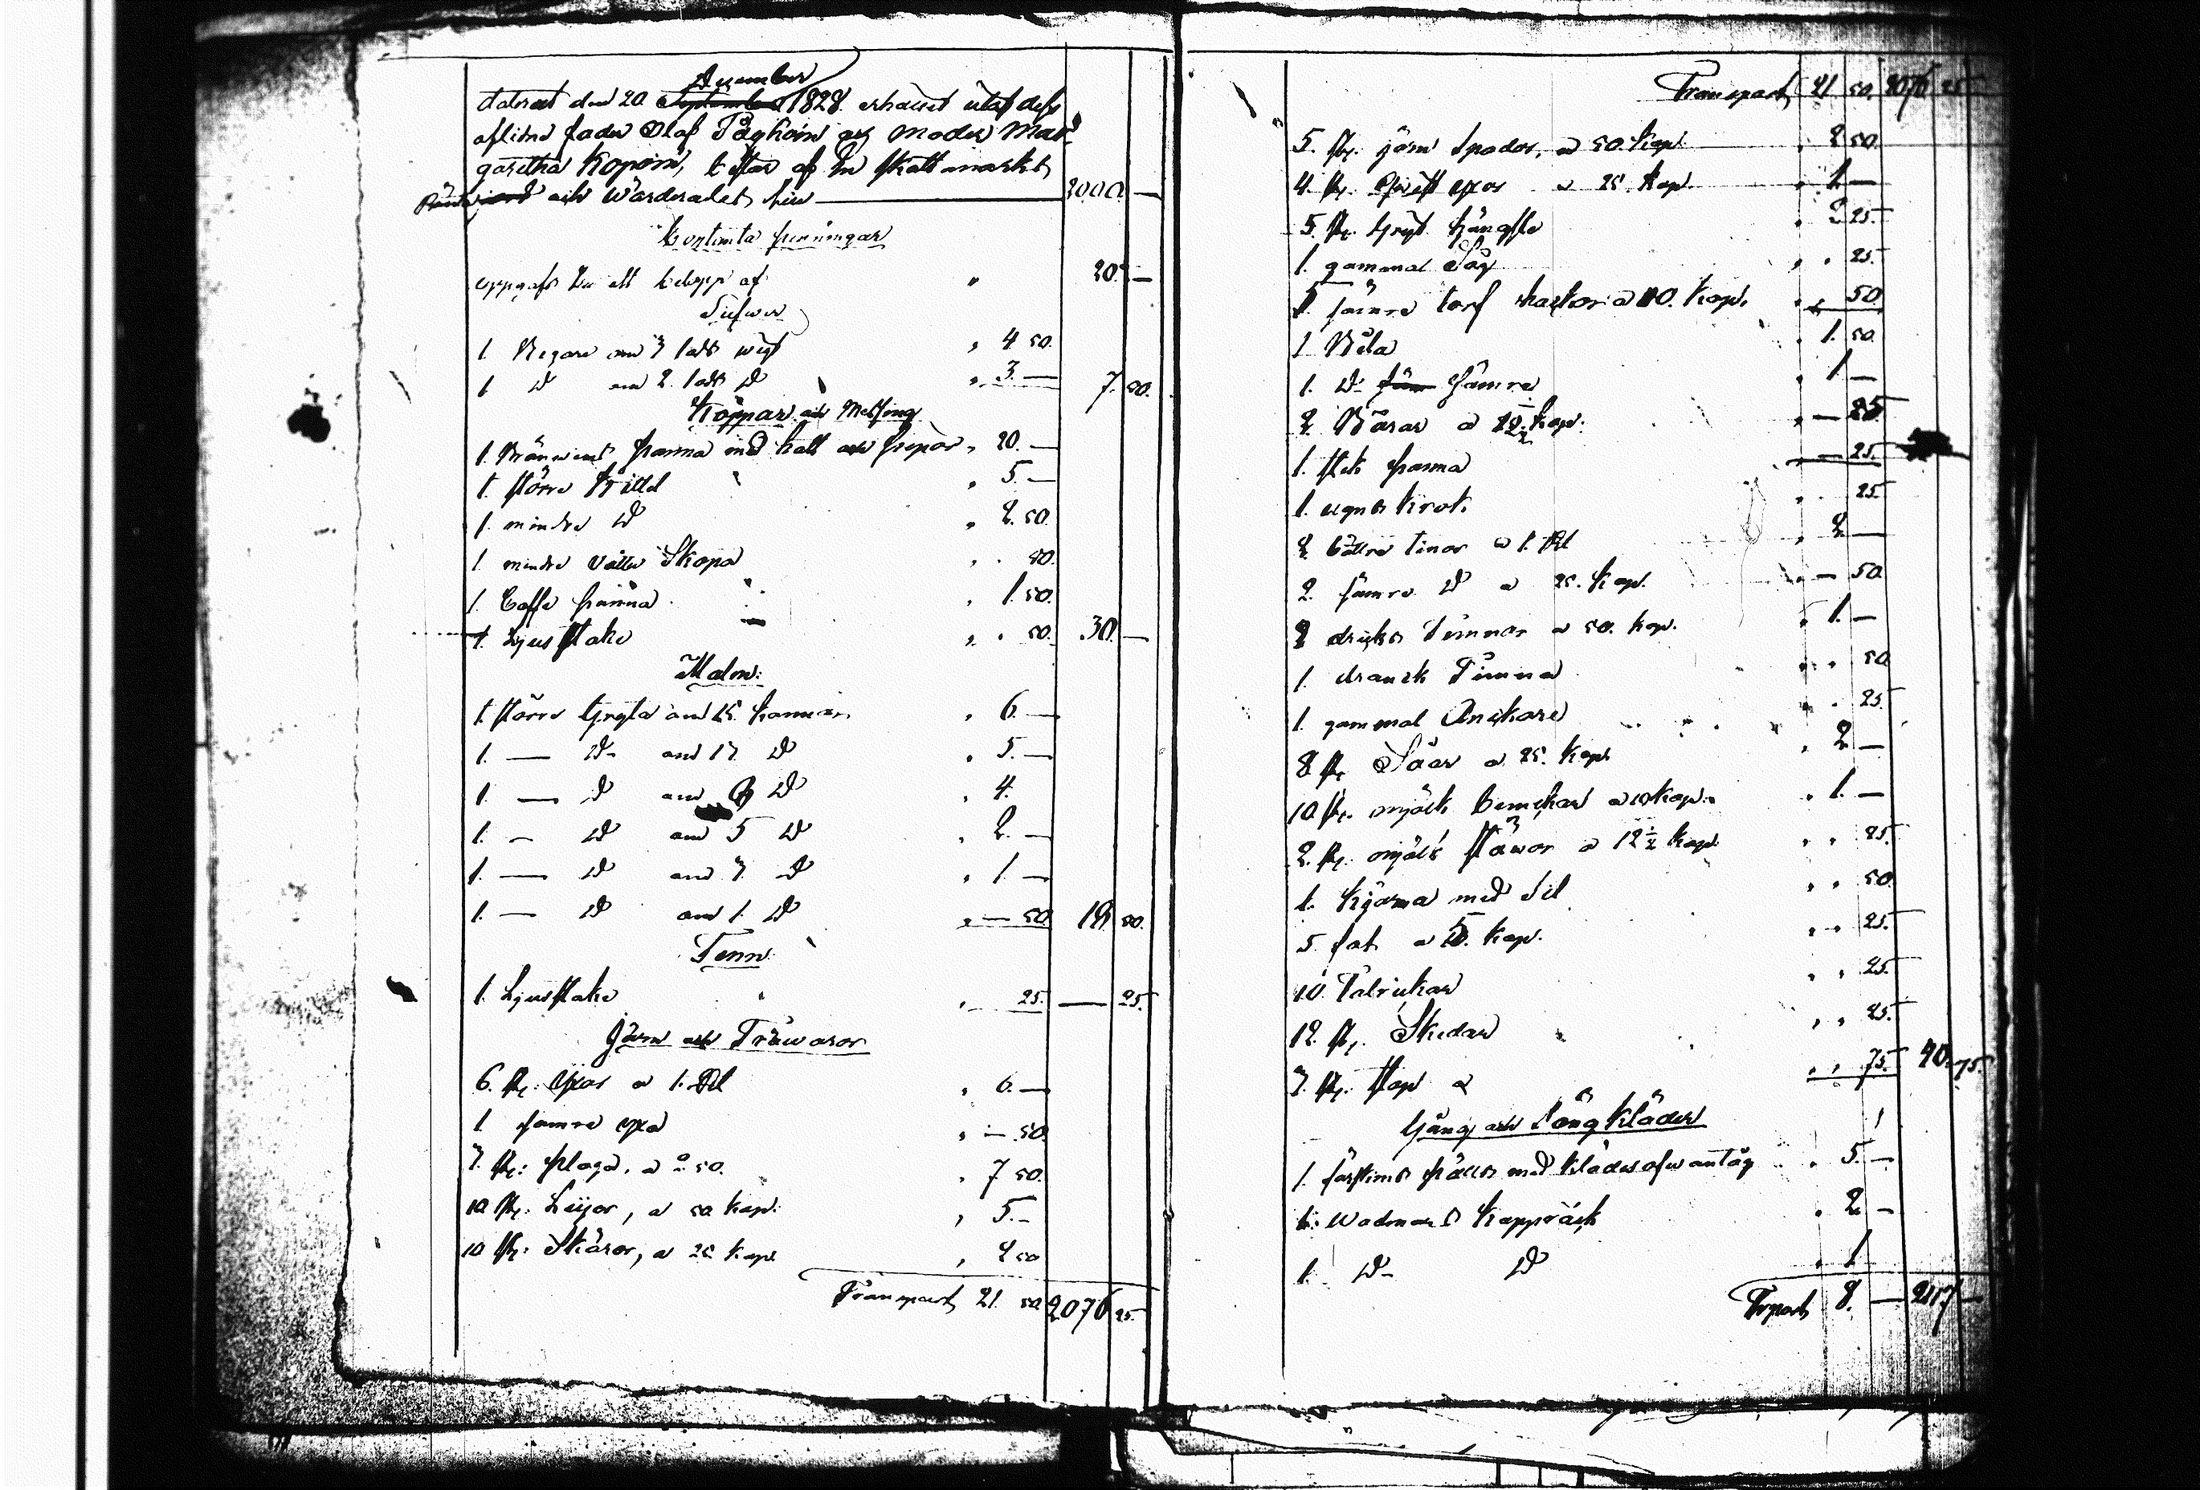 December
daterat den 20 September 1828. erhållit utaf dess
aflidne fader Olaf och Moder Mar-
garetha består af En Skattemarks
och Wärderades hin 2000. —
Contanta penningar
uppgafs till ett belopp af " 20. —
Silfwer
1 Begare om 3 lods wigt " 4 50.
1 D om 2. lods D " 3. — 7. 50.
Koppar och Messing
1. Bränwins panna med hatt och pipor " 20. —
1. större Kittel " 5. —
1. mindre D " 2. 50.
1. mindre Skopa " . 50.
1. Caffe panna " 1. 50.
1. Ljusstake " . 50. 30. —
Malm:
1. större Gryta om 15. kannor " 6. —
1. — D- om 13 D " 5. —
1. — D om D " 4.
1. — D om 5 D " 2. —
1. — D om 3. D " 1 —
1. — D om 1. D " — 50. 18. 50.
Tenn:
1. Ljusstake " 25. — 25.
Järn och Träwaror
6. st. yxor a 1. Rbl " 6. —
1 sämre yxa " — 50.
3. st: ploga, a 2. 50. " 7 50.
10 st: Lijor, a 50 kop: " 5. —
10 st: Skäror, a 25 kop " 2 50
Transport 21. 50 2076 25.
Transport 21 50. 2076 25
5. st. järn Spador, a 50. kop " 2 50.
4. st. yxor a 25. kop. " 1. —
5. st. Gryt hängsle " 2 25.
1. gammal Såg " . 25.
5. sämre torf hackor a 10. kop. " . 50
1 Båta " 1. 50.
1. D- säm sämre " 1. —
2. a 12½ kop. " — 25.
1. stek panna " — 25.
1. ugns krok. " . 25.
2. bättre tinor a 1. Rbl " 2. —
2. sämre D a 25. kop. " — 50.
2 dricks tunnor a 50. kop. " 1. —
1. drank Tunna " . 50
1. gammal Anckare " . 25.
8. st. Såar a 25. kop. " 2. —
10. st. mjölk a 10 kop. " 1. —
2. st. mjölk stäwor a 12½ kop. " . 25.
1. Kjärna med Sil " . 50.
5. fat a 5. kop. " . 25.
10. Talrickar " . 25.
12. st. Skedar " . 25.
3. st. stop a " . 75. 40. 75.
Gång och Sängkläder
1. fårskins fäll med klädes ofwantåg " 5. —
1. Wadmals Kappråck " 2. —
1. D- D " 1
Trport 8. — 2117 —